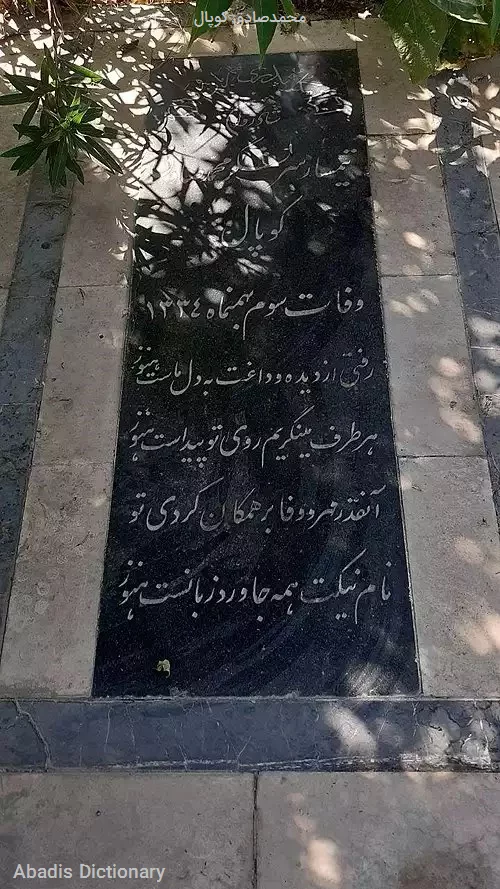 محمدصادق کوپال
تیمسار سرلشکر
کوپال
وفات سوم بهمنماه ۱۳۳۴
رفتی از دیده و داغت به دل ماست هنوز
هر طرف مینگریم روی تو پیداست هنوز
آنقدر مهر و وفا بر همکان کردی تو
نام نیکت همه جا ورد زبانست هنوز
Abadis Dictionary